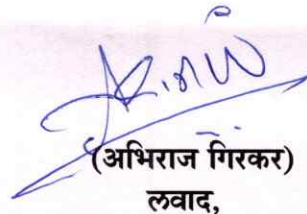 (अभिराज गिरकर)
लवाद,